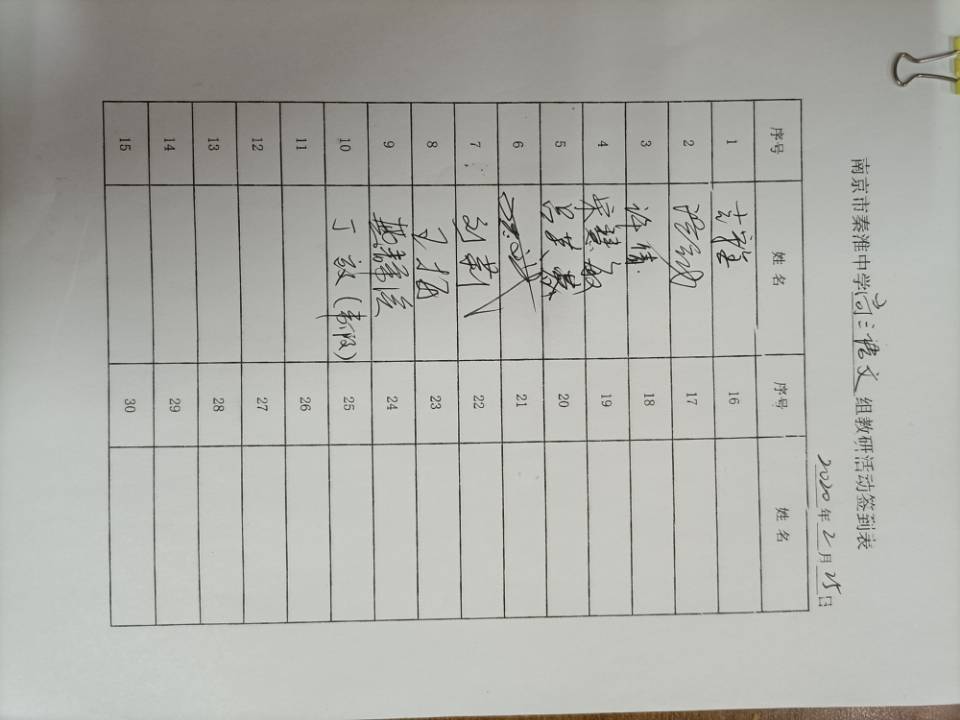 南京市秦淮中学高三语文组教研活动签到表
2020年2月25日
序号 姓名 序号 姓名
1 16
2 17
3 许倩 18
4 宋慧敏 19
5 吕其慧 20
6 21
7 刘莉 22
8 丁梅 23
9 24
10 丁 (事假) 25
11 26
12 27
13 28
14 29
15 30